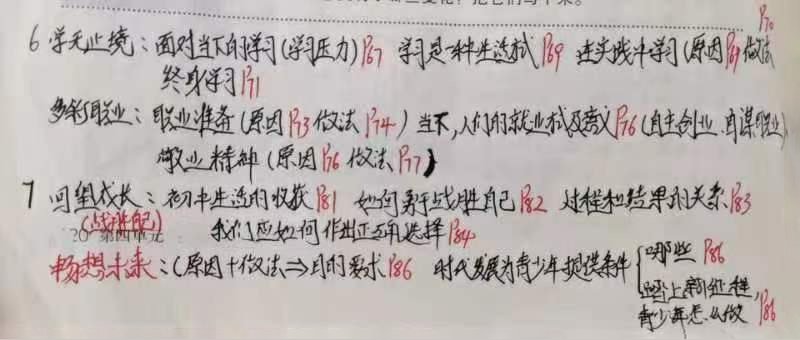 P70
6 学无止境：面对当下的学习(学习压力)P67 学习是一种生活方式P69 在实践中学习(原因P69做法
终身学习P71
多彩职业：职业准备(原因P73做法P74) 当下,人们的就业方式及意义P76(自主创业、自谋职业)
敬业精神(原因P76做法P77)
7 回望成长：初中生活的收获P81 如何勇于战胜自己P82 过程和结果的关系P83
(战胜自己) 我们应如何作出正确选择P84
20 第四单元
畅想未来：(原因+做法⇒目的要求P86 时代发展为青少年提供条件 哪些P86
踏上新征程,
青少年怎么做P86